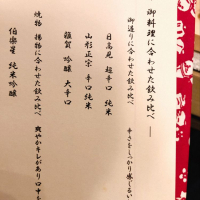 御料理に合わせた飲み比べ
御造りに合わせた飲み比べ 辛さをしっかり感じるい
日高見 超辛口 純米
山形正宗 辛口純米
雅賀 吟醸 大辛口
焼物 揚物に合わせた飲み比べ 爽やかキレがあり口中を
伯楽星 純米吟醸